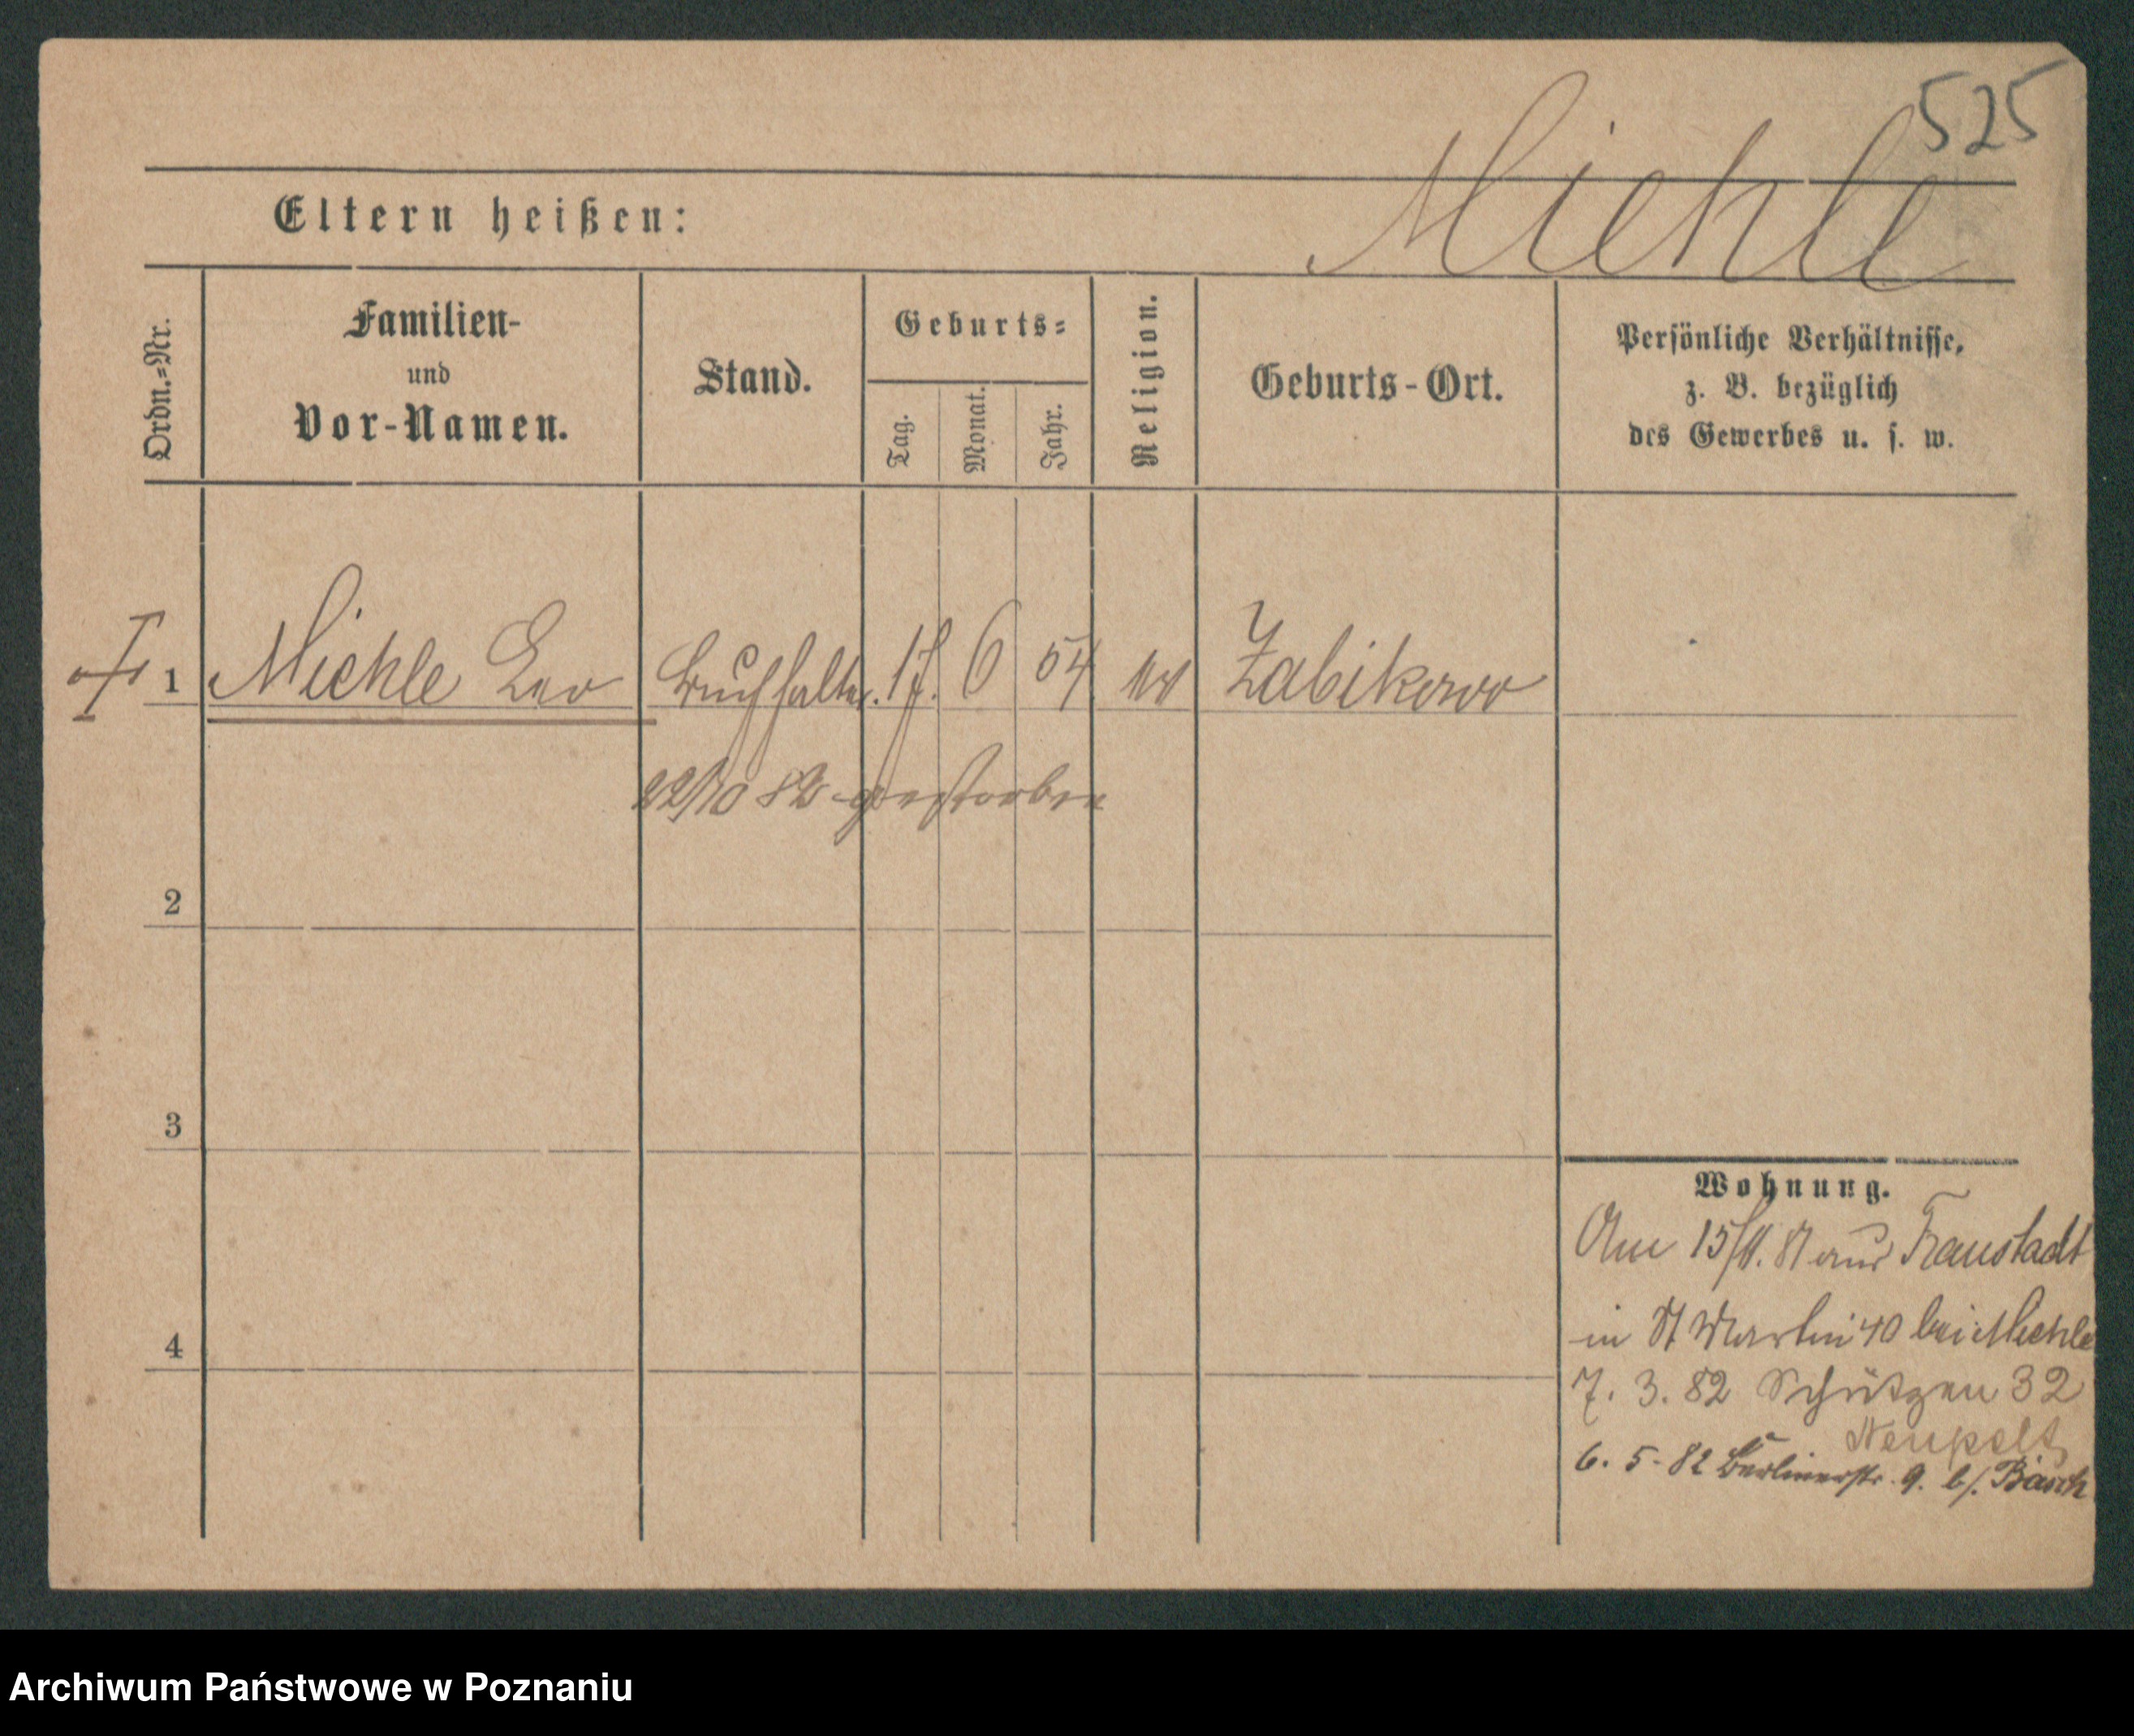 525
Miehle
Eltern heißen:
Ordn.=Nr.
Familien-
und
Vor-Namen.
Stand.
Geburts=
Tag.
Monat.
Jahr.
Religion.
Geburts-Ort.
Persönliche Verhältnisse,
z. B. bezüglich
des Gewerbes u. s. w.
1 Miehle Leo Buchhalter. 17. 6 54 Zabikowo
22/10 82 gestorben
2
3
4
Wohnung.
Am 15/11. 81 aus Fraustadt
in St Martin 40 bei Miehle
7. 3. 82 Schützen 32
Neupelt
6. 5. 82 Berlinerstr. 9. b/. Basch
Archiwum Państwowe w Poznaniu